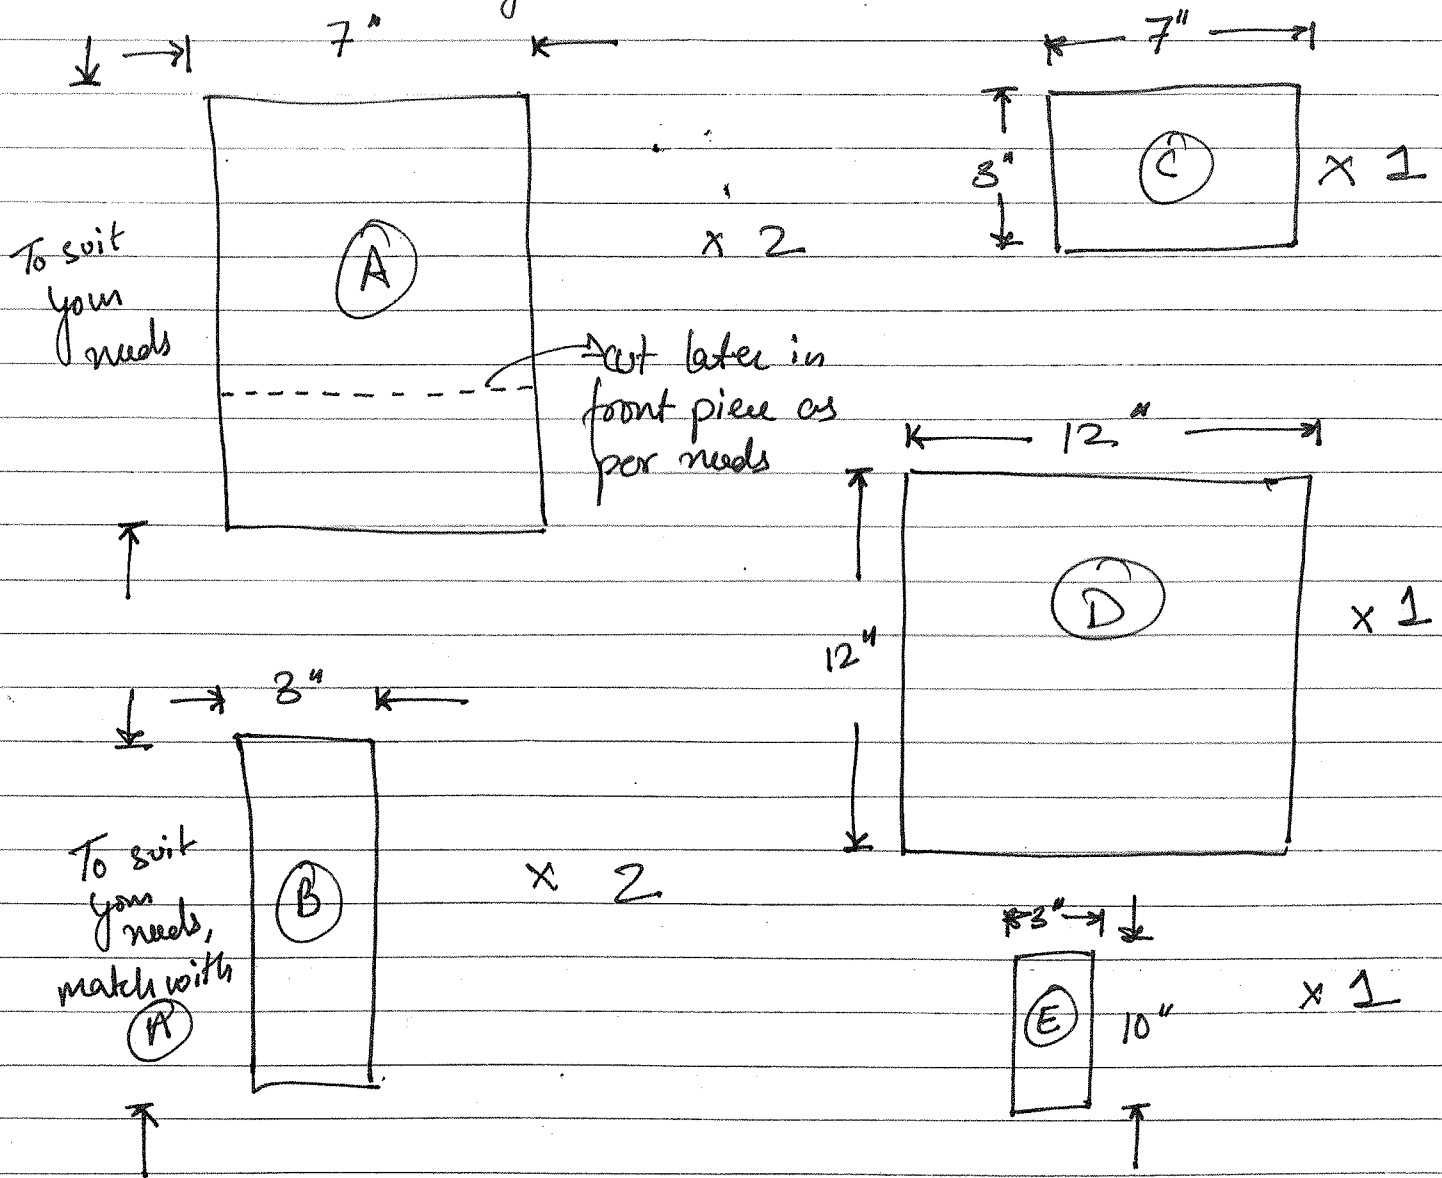 7"
To suit
your
needs
A
x 2
cut later in
front piece as
per needs
7"
3"
C
x 1
12"
12"
D
x 1
3"
To suit
your
needs,
match with
A
B
x 2
3"
E
10"
x 1